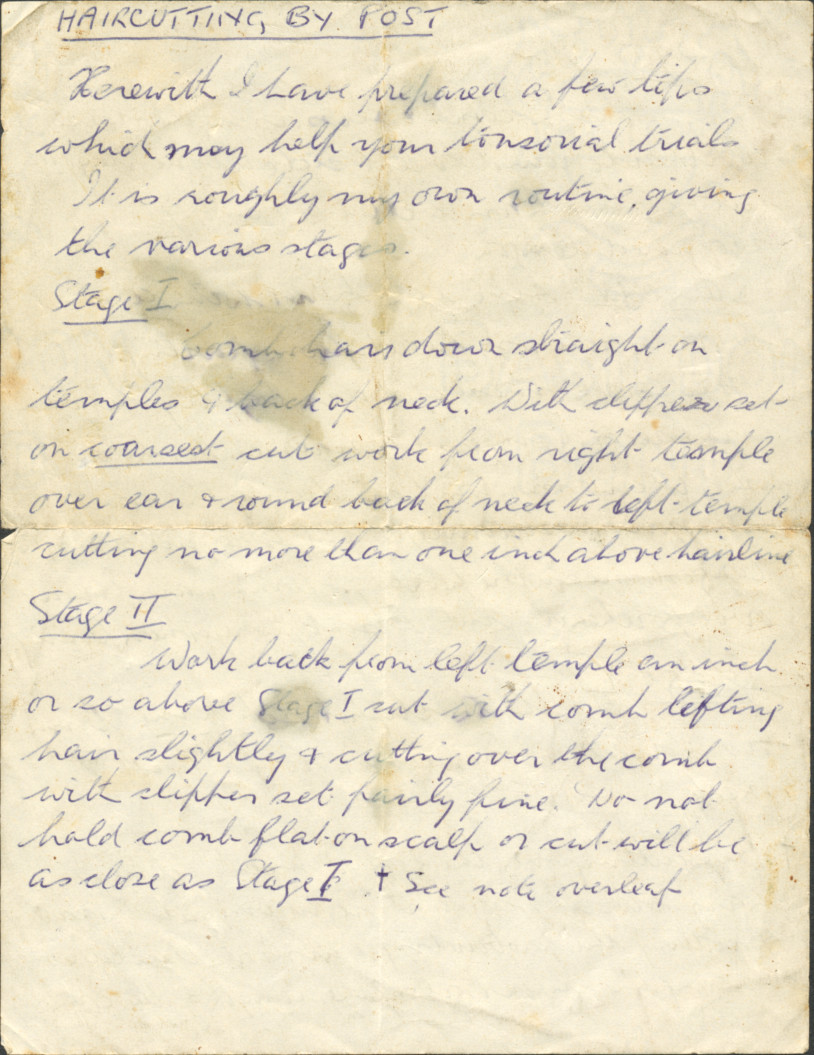 HAIRCUTTING BY POST
Herewith I have prepared a few tips
which may help your tonsorial trials
It is roughly my own routine, giving
the various stages.
Stage I
Comb hair down straight on
temples & back of neck. With clippers set
on coarsest cut work from right temple
over ear & round back of neck to left temple
cutting no more than one inch above hairline
Stage II
Work back from left temple an inch
or so above Stage I cut with comb lifting
hair slightly & cutting over the comb
with clipper set fairly fine. Do not
hold comb flat on scalp or cut will be
as close as Stage I † See note overleaf